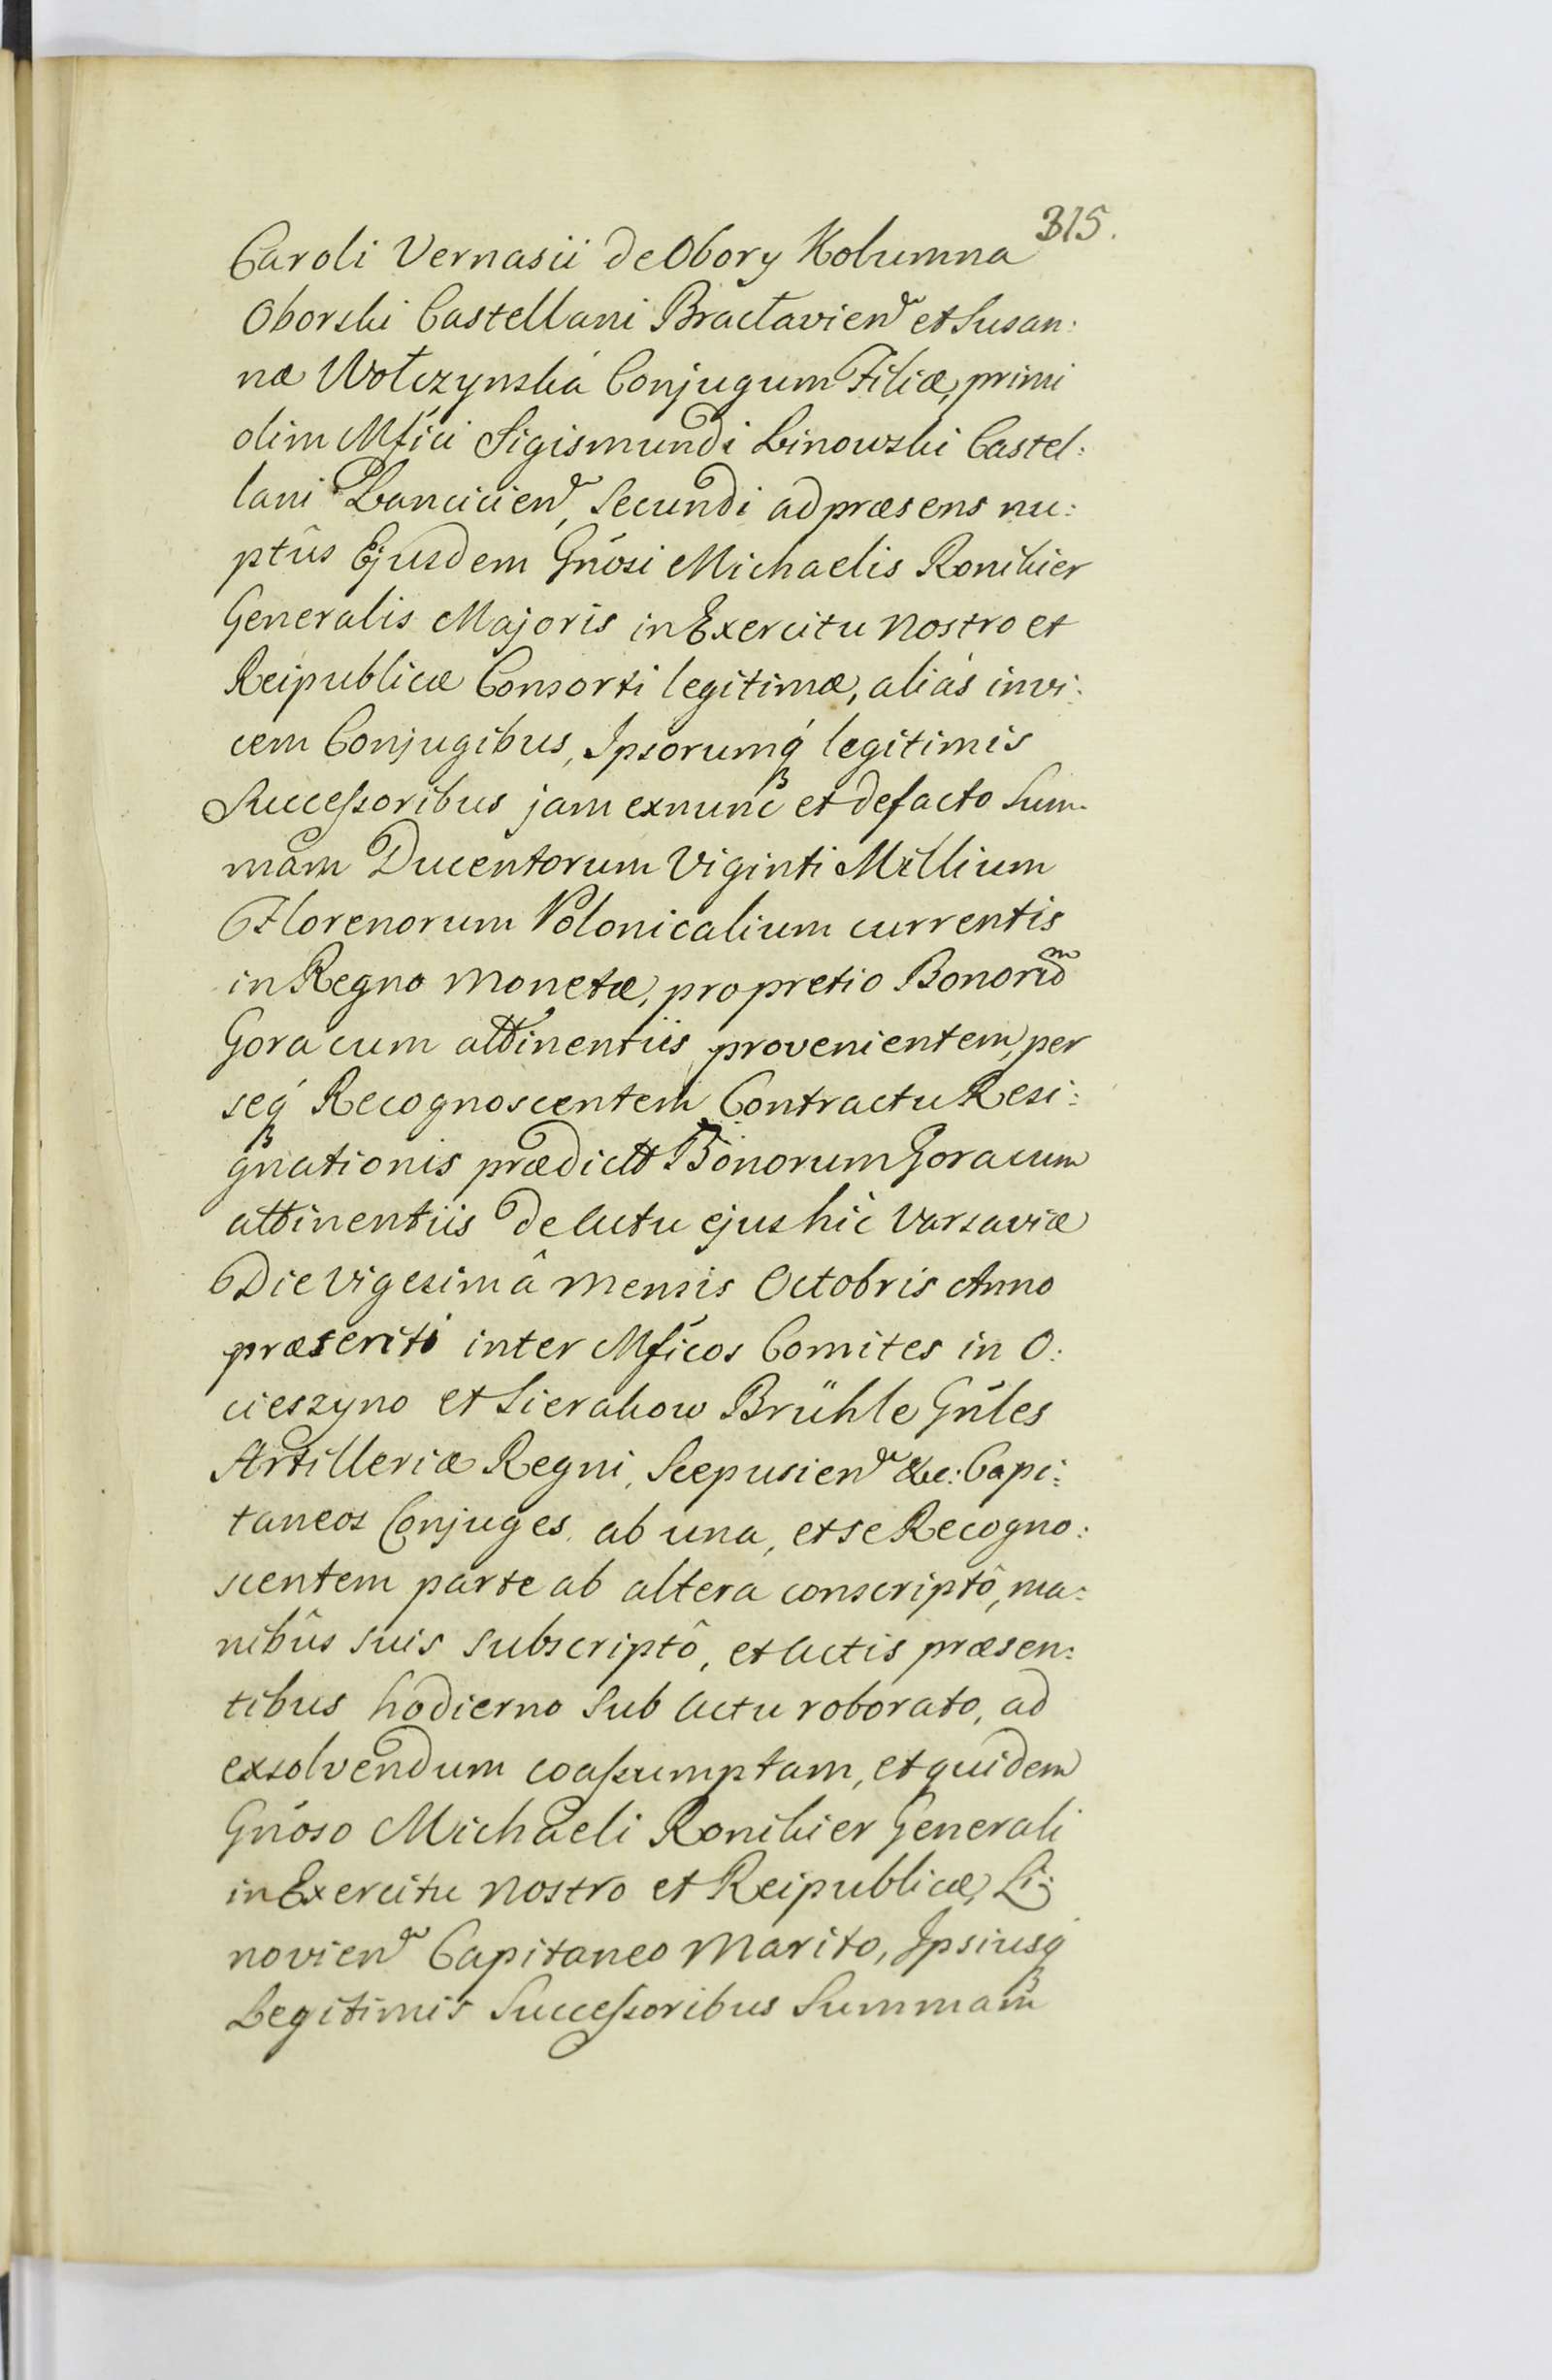 315.
Caroli Vernasii de Obory Kolumna
Oborski Castellani Bractavien et Susan:
næ Wołczynská Conjugum Filiæ, primi
olim Mfíci Sigismundi Linowski Castel:
lani Lancicien, Secundi ad præsens nu:
ptûs Ejusdem Gnósi Michaelis Ronikier
Generalis Majoris in Exercitu Nostro et
Reipublicæ Consorti legitimæ, aliás invi:
cem Conjugibus, Ipsorumq́ legitimis
Succeſsoribus jam exnunc et defacto Sum:
mam Ducentorum Viginti Millium
Florenorum Polonicalium currentis
in Regno Monetæ, pro pretio Bonorum
Gora cum attinentiis provenientem, per
seq́ Recognoscentem Contractu Resi:
gnationis prædictt Bonorum Gora cum
attinentiis de Actu ejus hic Varsaviæ
Die Vigesimâ Mensis Octobris Anno
præseriti inter Mfícos Comites in O:
cieszyno et Sierakow Brühle Gńles
Artilleriæ Regni, Scepusien &c: Capi:
taneos Conjuges, ab una, et se Recogno:
scentem parte ab altera conscriptô, ma:
nibûs suis subscriptô, et Actis præsen:
tibus hodierno sub Actu roborato, ad
exsolvendum coaſsumptam, et quidem
Gnóso Michaeli Ronikier Generali
in Exercitu Nostro et Reipublicæ, Li:
novien Capitaneo Marito, Ipsiusq́
Legitimis Succeſsoribus Summam